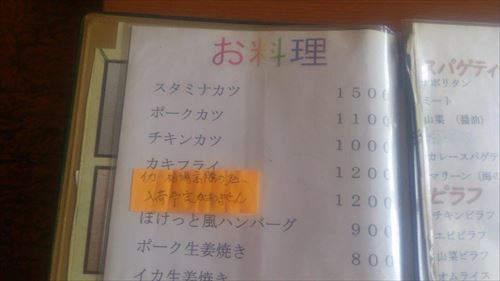 お料理
スタミナカツ 1500
ポークカツ 1100
チキンカツ 1000
カキフライ 1200
入荷予定がありません
1200
ぽけっと風ハンバーグ 900
ポーク生姜焼き 800
イカ生姜焼き
スパゲティ
ナポリタン
ミート
山菜 (醤油)
カレースパゲティ
マリーン (海の
ピラフ
チキンピラフ
エビピラフ
山菜ピラフ
オムライス